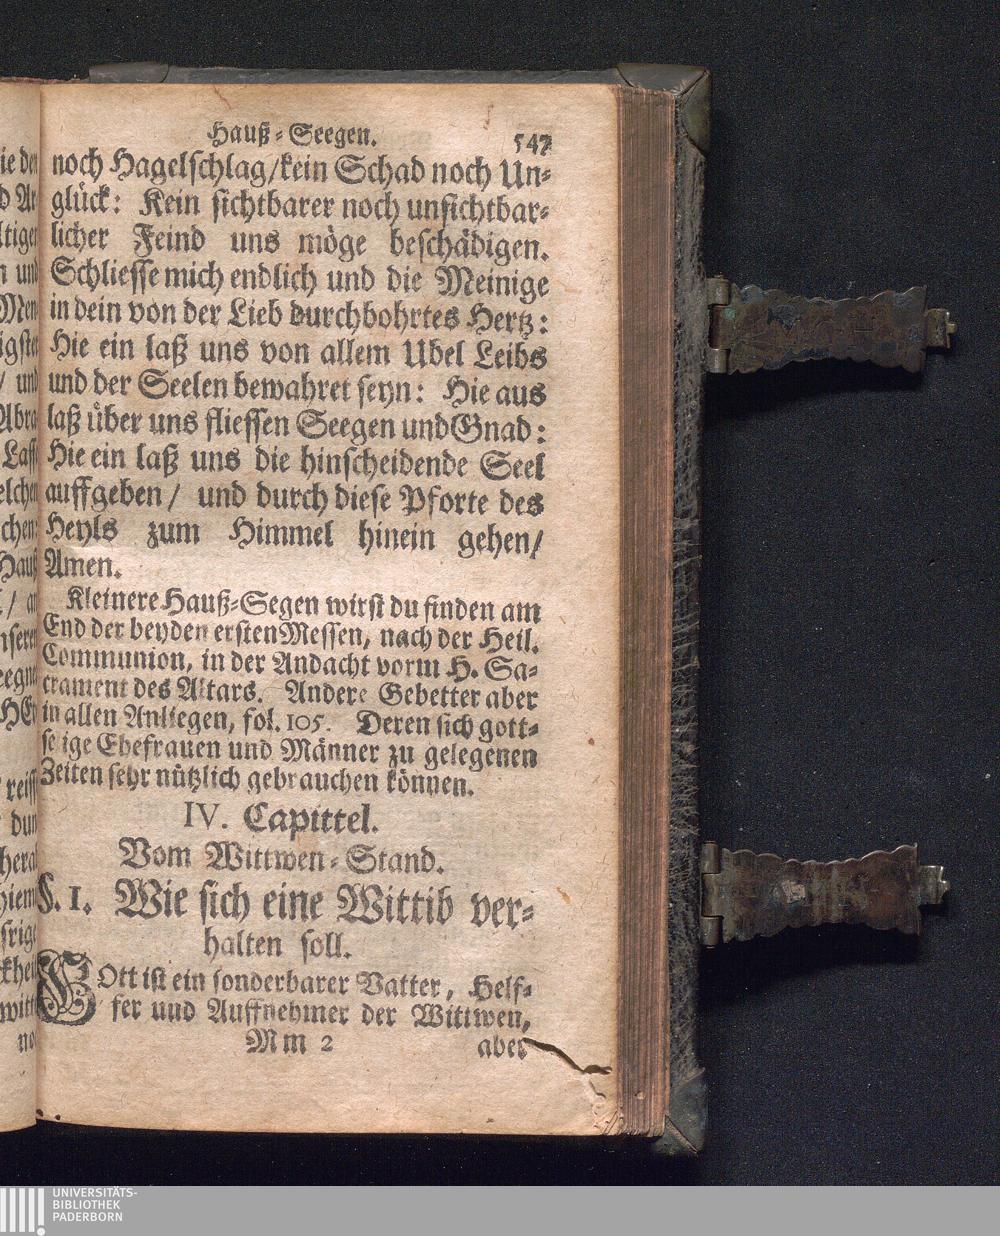 Hauß-Seegen. 547
noch Hagelschlag/kein Schad noch Un-
glück: Kein sichtbarer noch unsichtbar-
licher Feind uns möge beschädigen.
Schliesse mich endlich und die Meinige
in dein von der Lieb durchbohrtes Hertz:
Hie ein laß uns von allem Ubel Leibs
und der Seelen bewahret seyn: Hie aus
laß über uns fliessen Seegen und Gnad:
Hie ein laß uns die hinscheidende Seel
auffgeben/ und durch diese Pforte des
Heyls zum Himmel hinein gehen/
Amen.
Kleinere Hauß-Segen wirst du finden am
End der beyden ersten Messen, nach der Heil.
Communion, in der Andacht vorm H. Sa-
crament des Altars. Andere Gebetter aber
in allen Anliegen, fol. 105. Deren sich gott-
selige Ehefrauen und Männer zu gelegenen
Zeiten sehr nützlich gebrauchen können.
IV. Capittel.
Vom Wittwen-Stand.
§. 1. Wie sich eine Wittib ver-
halten soll.
GOtt ist ein sonderbarer Vatter, Helf-
fer und Auffnehmer der Wittwen,
Mm 2 aber
UNIVERSITÄTS-
BIBLIOTHEK
PADERBORN